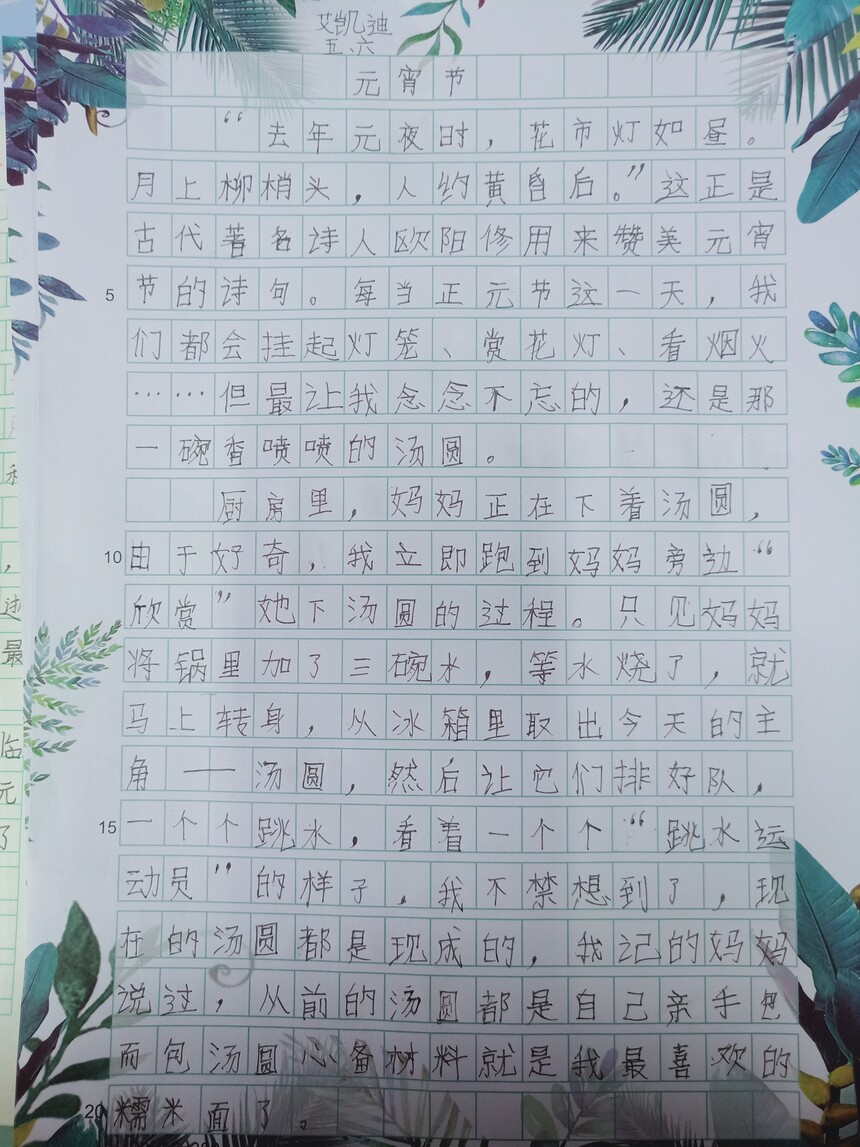 艾凯迪
五、六
元宵节
“去年元夜时，花市灯如昼。
月上柳梢头，人约黄昏后。”这正是
古代著名诗人欧阳修用来赞美元宵
5 节的诗句。每当正元节这一天，我
们都会挂起灯笼、赏花灯、看烟火
……但最让我念念不忘的，还是那
一碗香喷喷的汤圆。
厨房里，妈妈正在下着汤圆，
10 由于好奇，我立即跑到妈妈旁边“
欣赏”她下汤圆的过程。只见妈妈
将锅里加了三碗水，等水烧了，就
马上转身，从冰箱里取出今天的主
角——汤圆，然后让它们排好队，
15 一个个跳水，看着一个个“跳水运
动员”的样子，我不禁想到了，现
在的汤圆都是现成的，我记的妈妈
说过，从前的汤圆都是自己亲手包
而包汤圆必备材料就是我最喜欢的
20 糯米面了。
最
临
元
了